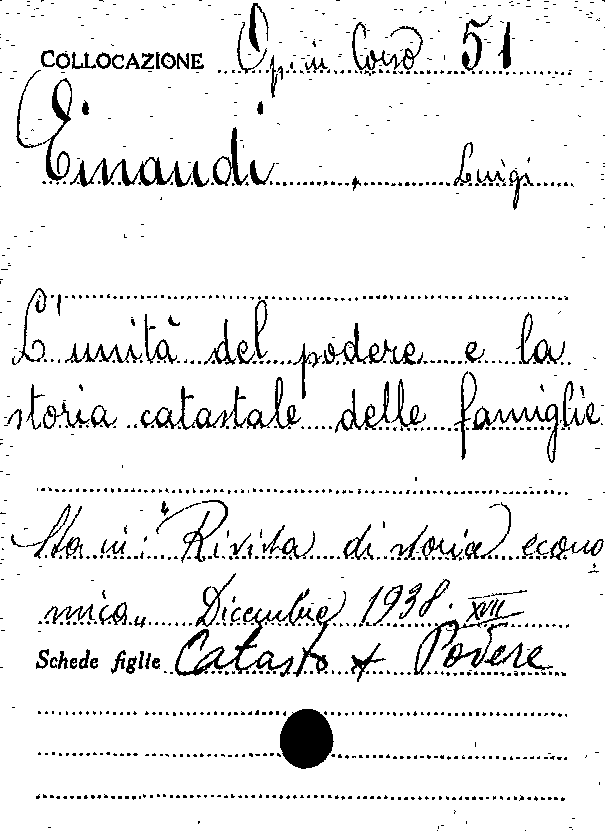 COLLOCAZIONE Op. in Corso 51
Einaudi , Luigi
L'unità del podere e la
storia catastale delle famiglie
Sta in: "Rivista di storia econo
mica" Dicembre 1938. XVII
Schede figlie Catasto + Podere